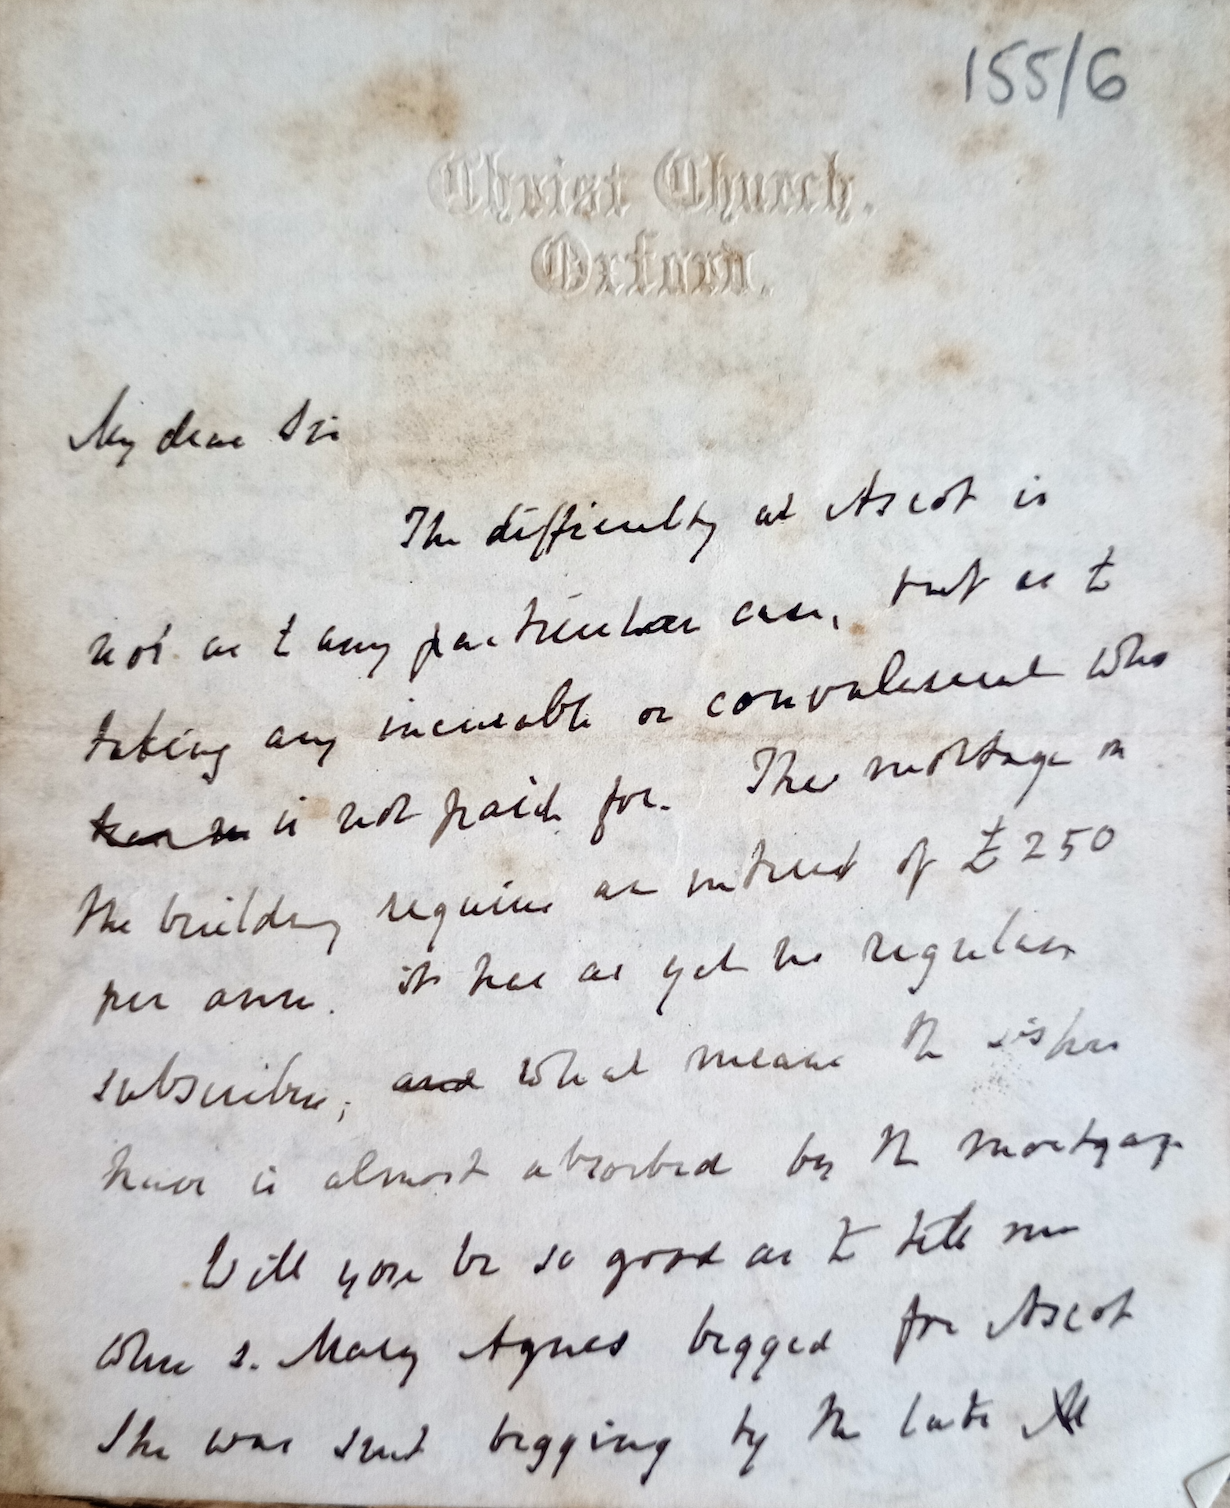 155/6
Christ Church.
Oxford.
My dear Sir
The difficulty at Ascot is
not as to any particular case, but as to
taking any incurable or convalescent who
is not paid for. The mortage on
the building requires an interest of £250
per ann. it has as yet no regular
subscribers; and what means the sisters
have is almost absorbed by the mortgage
Will you be so good as to tell me
when s. Mary Agnes begged for Ascot
She was sent begging by the late M